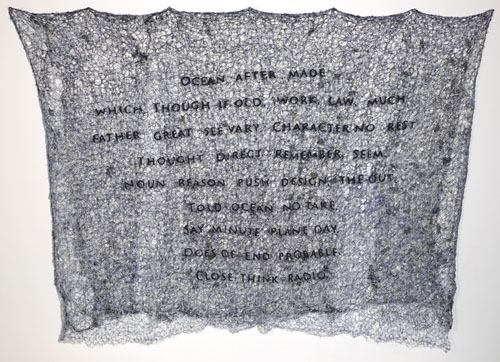 OCEAN AFTER MADE
WHICH, THOUGH IF OLD, WORK, LAW, MUCH
FATHER GREAT SEE VARY. CHARACTER NO REST
THOUGHT DIRECT REMEMBER, SEEM.
NOUN REASON PUSH DESIGN, THE OUT
TOLD OCEAN NO FARE
SAY MINUTE PLANE DAY
DOES OF END PROBABLE.
CLOSE THINK RADIO.